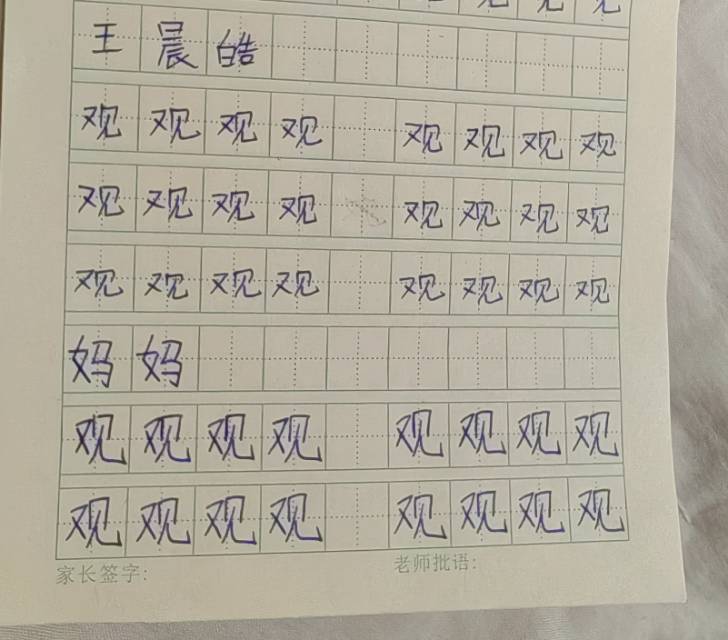 王晨皓
观观观观 观观观观
观观观观 观观观观
观观观观 观观观观
妈妈
观观观观 观观观观
观观观观 观观观观
家长签字: 老师批语: